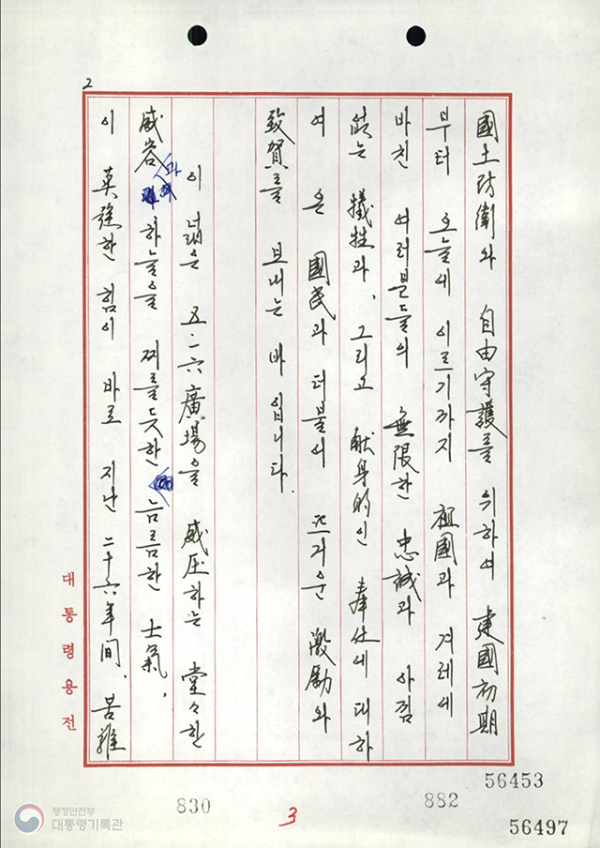 2
國土防衛와 自由守護를 위하여 建國初期
부터 오늘에 이르기까지 祖國과 겨레에
바친 여러분들의 無限한 忠誠과 아낌
없는 犧牲과, 그리고 献身的인 奉仕에 대하
여 온 國民과 더불어 뜨거운 激勵와
致賀를 보내는 바 입니다.
이 넓은 五·一六廣場을 威圧하는 堂々한
威容과 하늘을 찌를듯한 늠름한 士氣,
이 莫强한 힘이 바로 지난 二十六年间, 苦難
대통령용전
56453
830
3
882
56497
행정안전부
대통령기록관